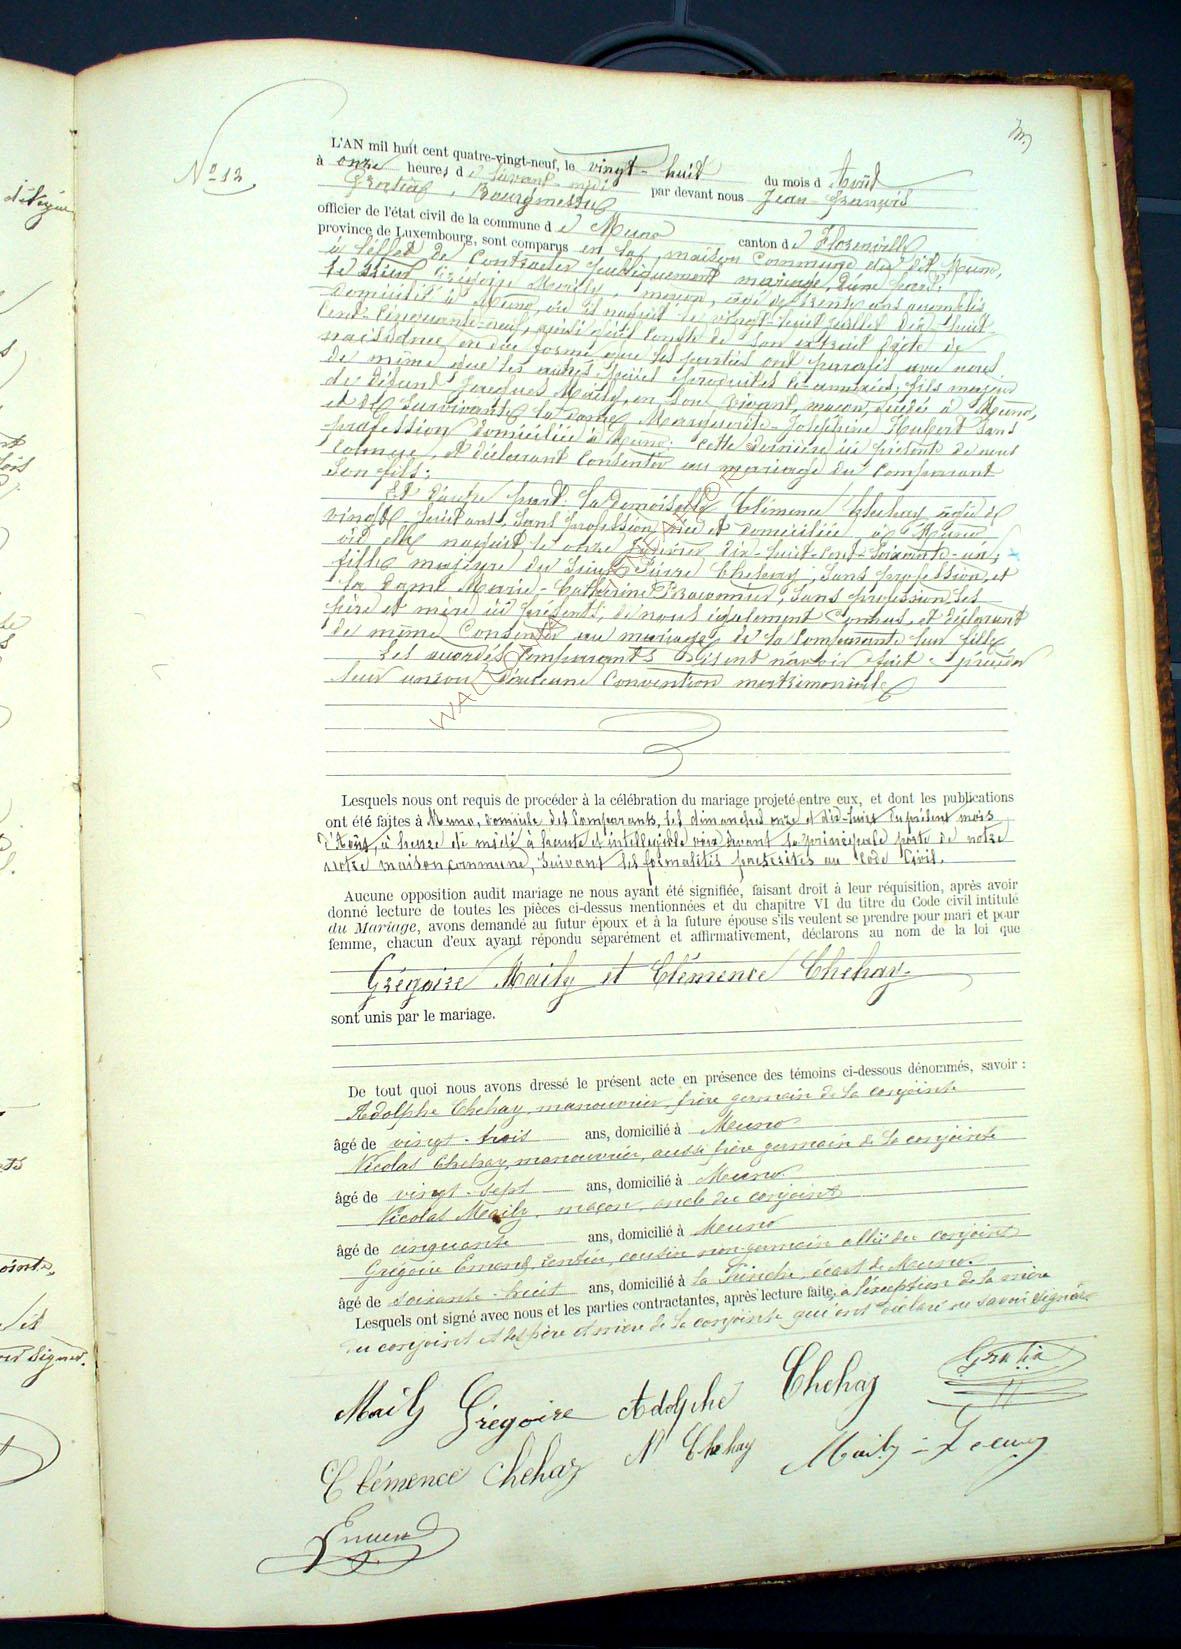 Nº 13
L'AN mil huit cent quatre-vingt-neuf, le vingt-huit du mois d'Août
à onze heures d avant-midi par devant nous Jean-François
Gratia, Bourgmestre
officier de l'état civil de la commune de Muno canton de Florenville
province de Luxembourg, sont comparus en la maison Commune du dit Muno,
à l'effet de Contracter publiquement mariage, d'une part:
le Sieur Grégoire Maily, maçon, âgé de trente ans accomplis
domicilié à Muno, où il naquit le vingt-huit juillet dix-huit-
Cent-Cinquante-neuf, ainsi qu'il Conste de Son extrait d'acte de
naissance en due forme que les parties ont paraphé avec nous
de même que les autres pièces produites ci-annexées; fils majeur
de défunt Jacques Maily, en Son vivant, maçon, décédé à Muno,
et de Survivante la dame Marguerite-Joséphine Hubert Sans
profession domiciliée à Muno. Cette dernière ici présente de nous
Connue, et déclarant Consentir au mariage du Comparant
Son fils;
Et d'autre part: la demoiselle Clémence Chehay âgée de
vingt-huit ans, Sans profession, née et domiciliée à Muno
où elle naquit le onze Janvier dix-huit-Cent-Soixante-un;
fille majeure du Sieur Pierre Chehay, Sans profession, et
la dame Marie-Catherine Braconnier, Sans profession, Ses
père et mère ici présents, de nous également Connus, et déclarant
de même Consentir au mariage de la Comparante leur fille
Les accordés Comparants disent n'avoir fait précéder
leur union d'aucune Convention matrimoniale
Lesquels nous ont requis de procéder à la célébration du mariage projeté entre eux, et dont les publications
ont été faites à Muno, domicile des Comparants, les dimanches onze et dix-huit du présent mois
d'Août, à heure de midi, à haute et intelligible voix devant la principale porte de notre
notre maison commune, Suivant les formalités prescrites au Code Civil.
Aucune opposition audit mariage ne nous ayant été signifiée, faisant droit à leur réquisition, après avoir
donné lecture de toutes les pièces ci-dessus mentionnées et du chapitre VI du titre du Code civil intitulé
du Mariage, avons demandé au futur époux et à la future épouse s'ils veulent se prendre pour mari et pour
femme, chacun d'eux ayant répondu séparément et affirmativement, déclarons au nom de la loi que
Grégoire Maily et Clémence Chehay.
sont unis par le mariage.
De tout quoi nous avons dressé le présent acte en présence des témoins ci-dessous dénommés, savoir :
Adolphe Chehay, manouvrier, frère germain de la conjointe
âgé de vingt-trois ans, domicilié à Muno
Nicolas Chehay, manouvrier, aussi frère germain de la conjointe
âgé de vingt-sept ans, domicilié à Muno
Nicolas Maily, maçon, oncle du conjoint
âgé de cinquante ans, domicilié à Muno
Grégoire Emond, rentier, cousin non-germain allié du conjoint
âgé de soixante-huit ans, domicilié à la écart de Muno.
Lesquels ont signé avec nous et les parties contractantes, après lecture faite, à l'exception de la mère
du conjoint et des père et mère de la conjointe qui ont déclaré ne savoir signer
Maily Grégoire Adolphe Chehay Gratia
Clémence Chehay N Chehay Maily
Emond